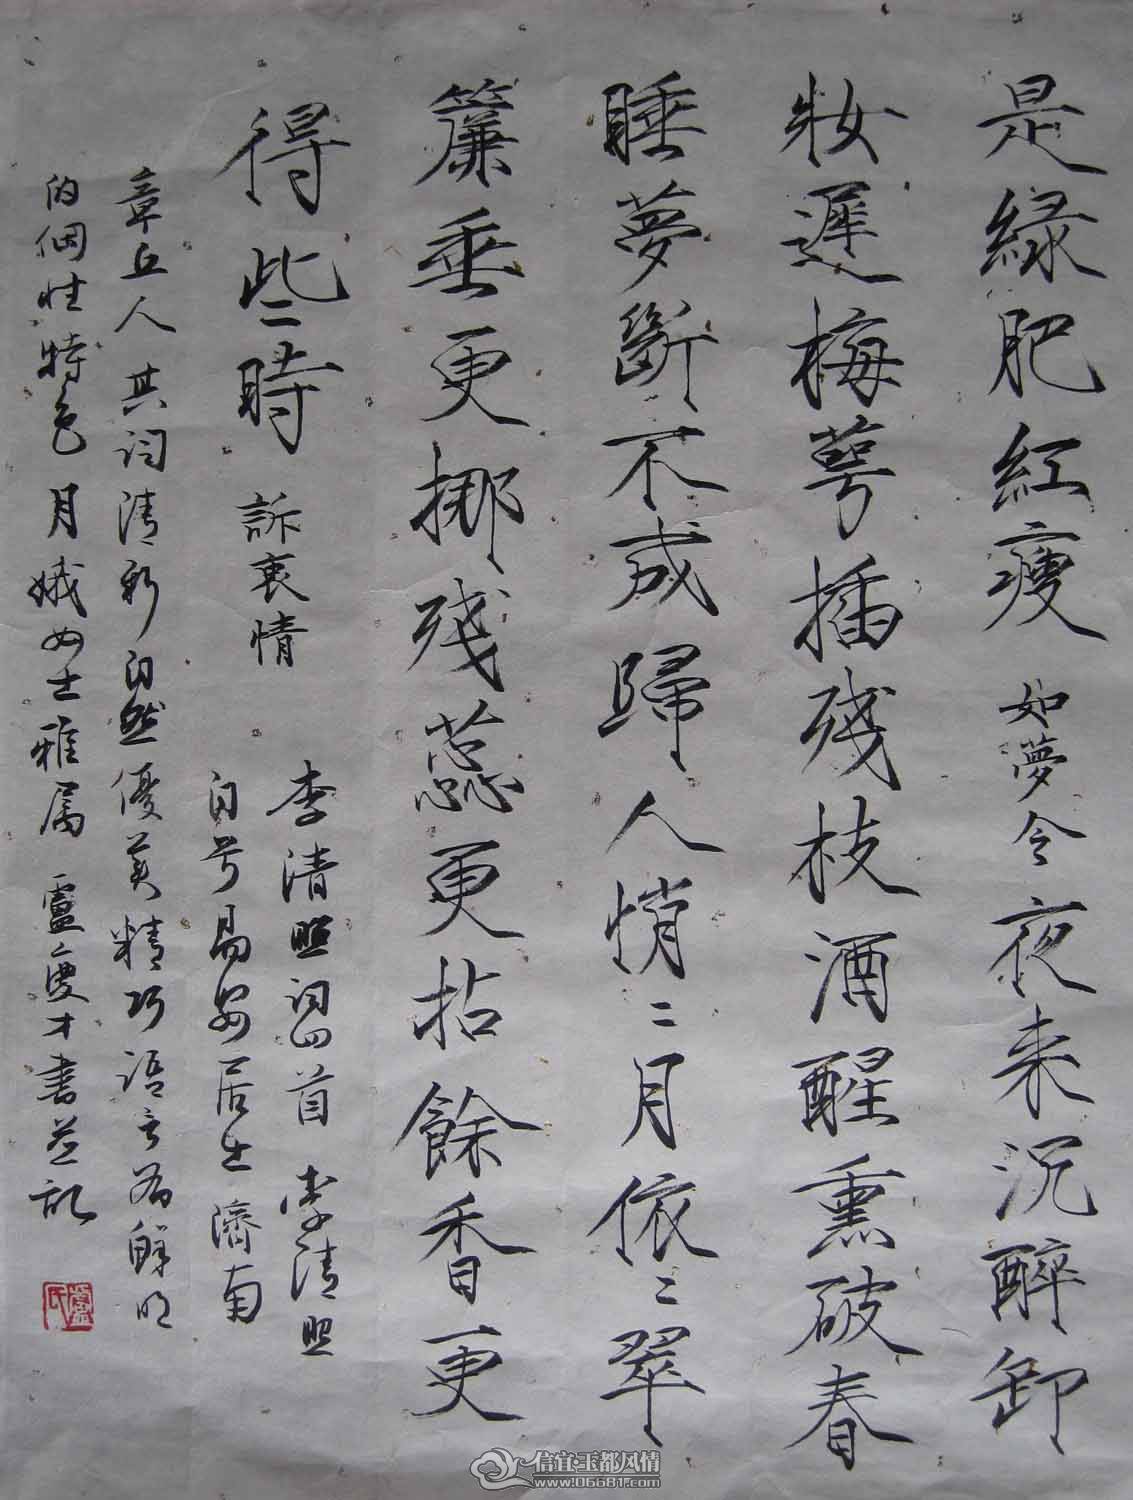 是緑肥紅瘦 如夢令 夜来沉醉卸
妝遲梅萼插残枝酒醒熏破春
睡夢斷不成歸人悄〻月依〻翠
簾垂更挪残蕊更拈餘香更
得些時 訴衷情
李清照词四首 李清照
自号易安居士 濟南
章丘人 其词清新自然優美精巧语言有鲜明
的個性特色 月娥女士雅属 盧慶才書並記
盧氏
信宜·玉都风情
www.06681.com